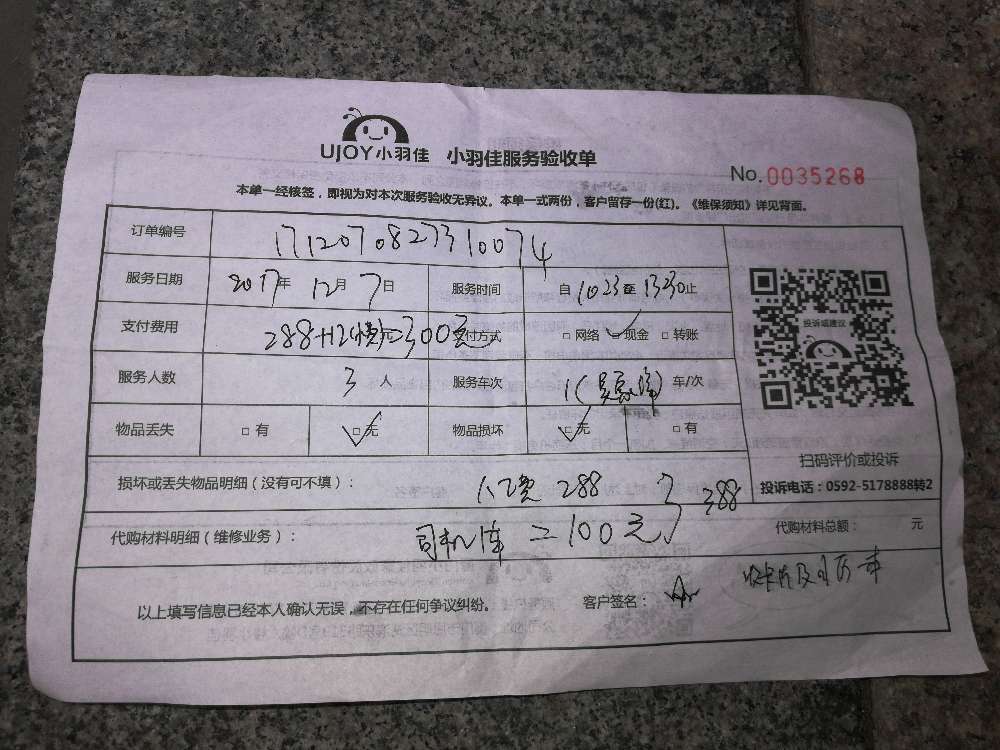 UJOY小羽佳 小羽佳服务验收单
No. 0035268
本单一经核签，即视为对本次服务验收无异议。本单一式两份，客户留存一份(红)。《维保须知》详见背面。
订单编号 1712070827310074
服务日期 2017年 12月 7日 服务时间 自 1023至 1323止
支付费用 288+12 =300元 支付方式 □ 网络 □ 现金 □ 转账
投诉或建议
服务人数 3 人 服务车次 1( ) 车/次
物品丢失 □ 有 □ 无 物品损坏 □ 无 □ 有
扫码评价或投诉
损坏或丢失物品明细（没有可不填）： 人工费 288 388
投诉电话：0592-5178888转2
代购材料明细（维修业务）： 司机 100元 代购材料总额： 元
以上填写信息已经本人确认无误，不存在任何争议纠纷。 客户签名：